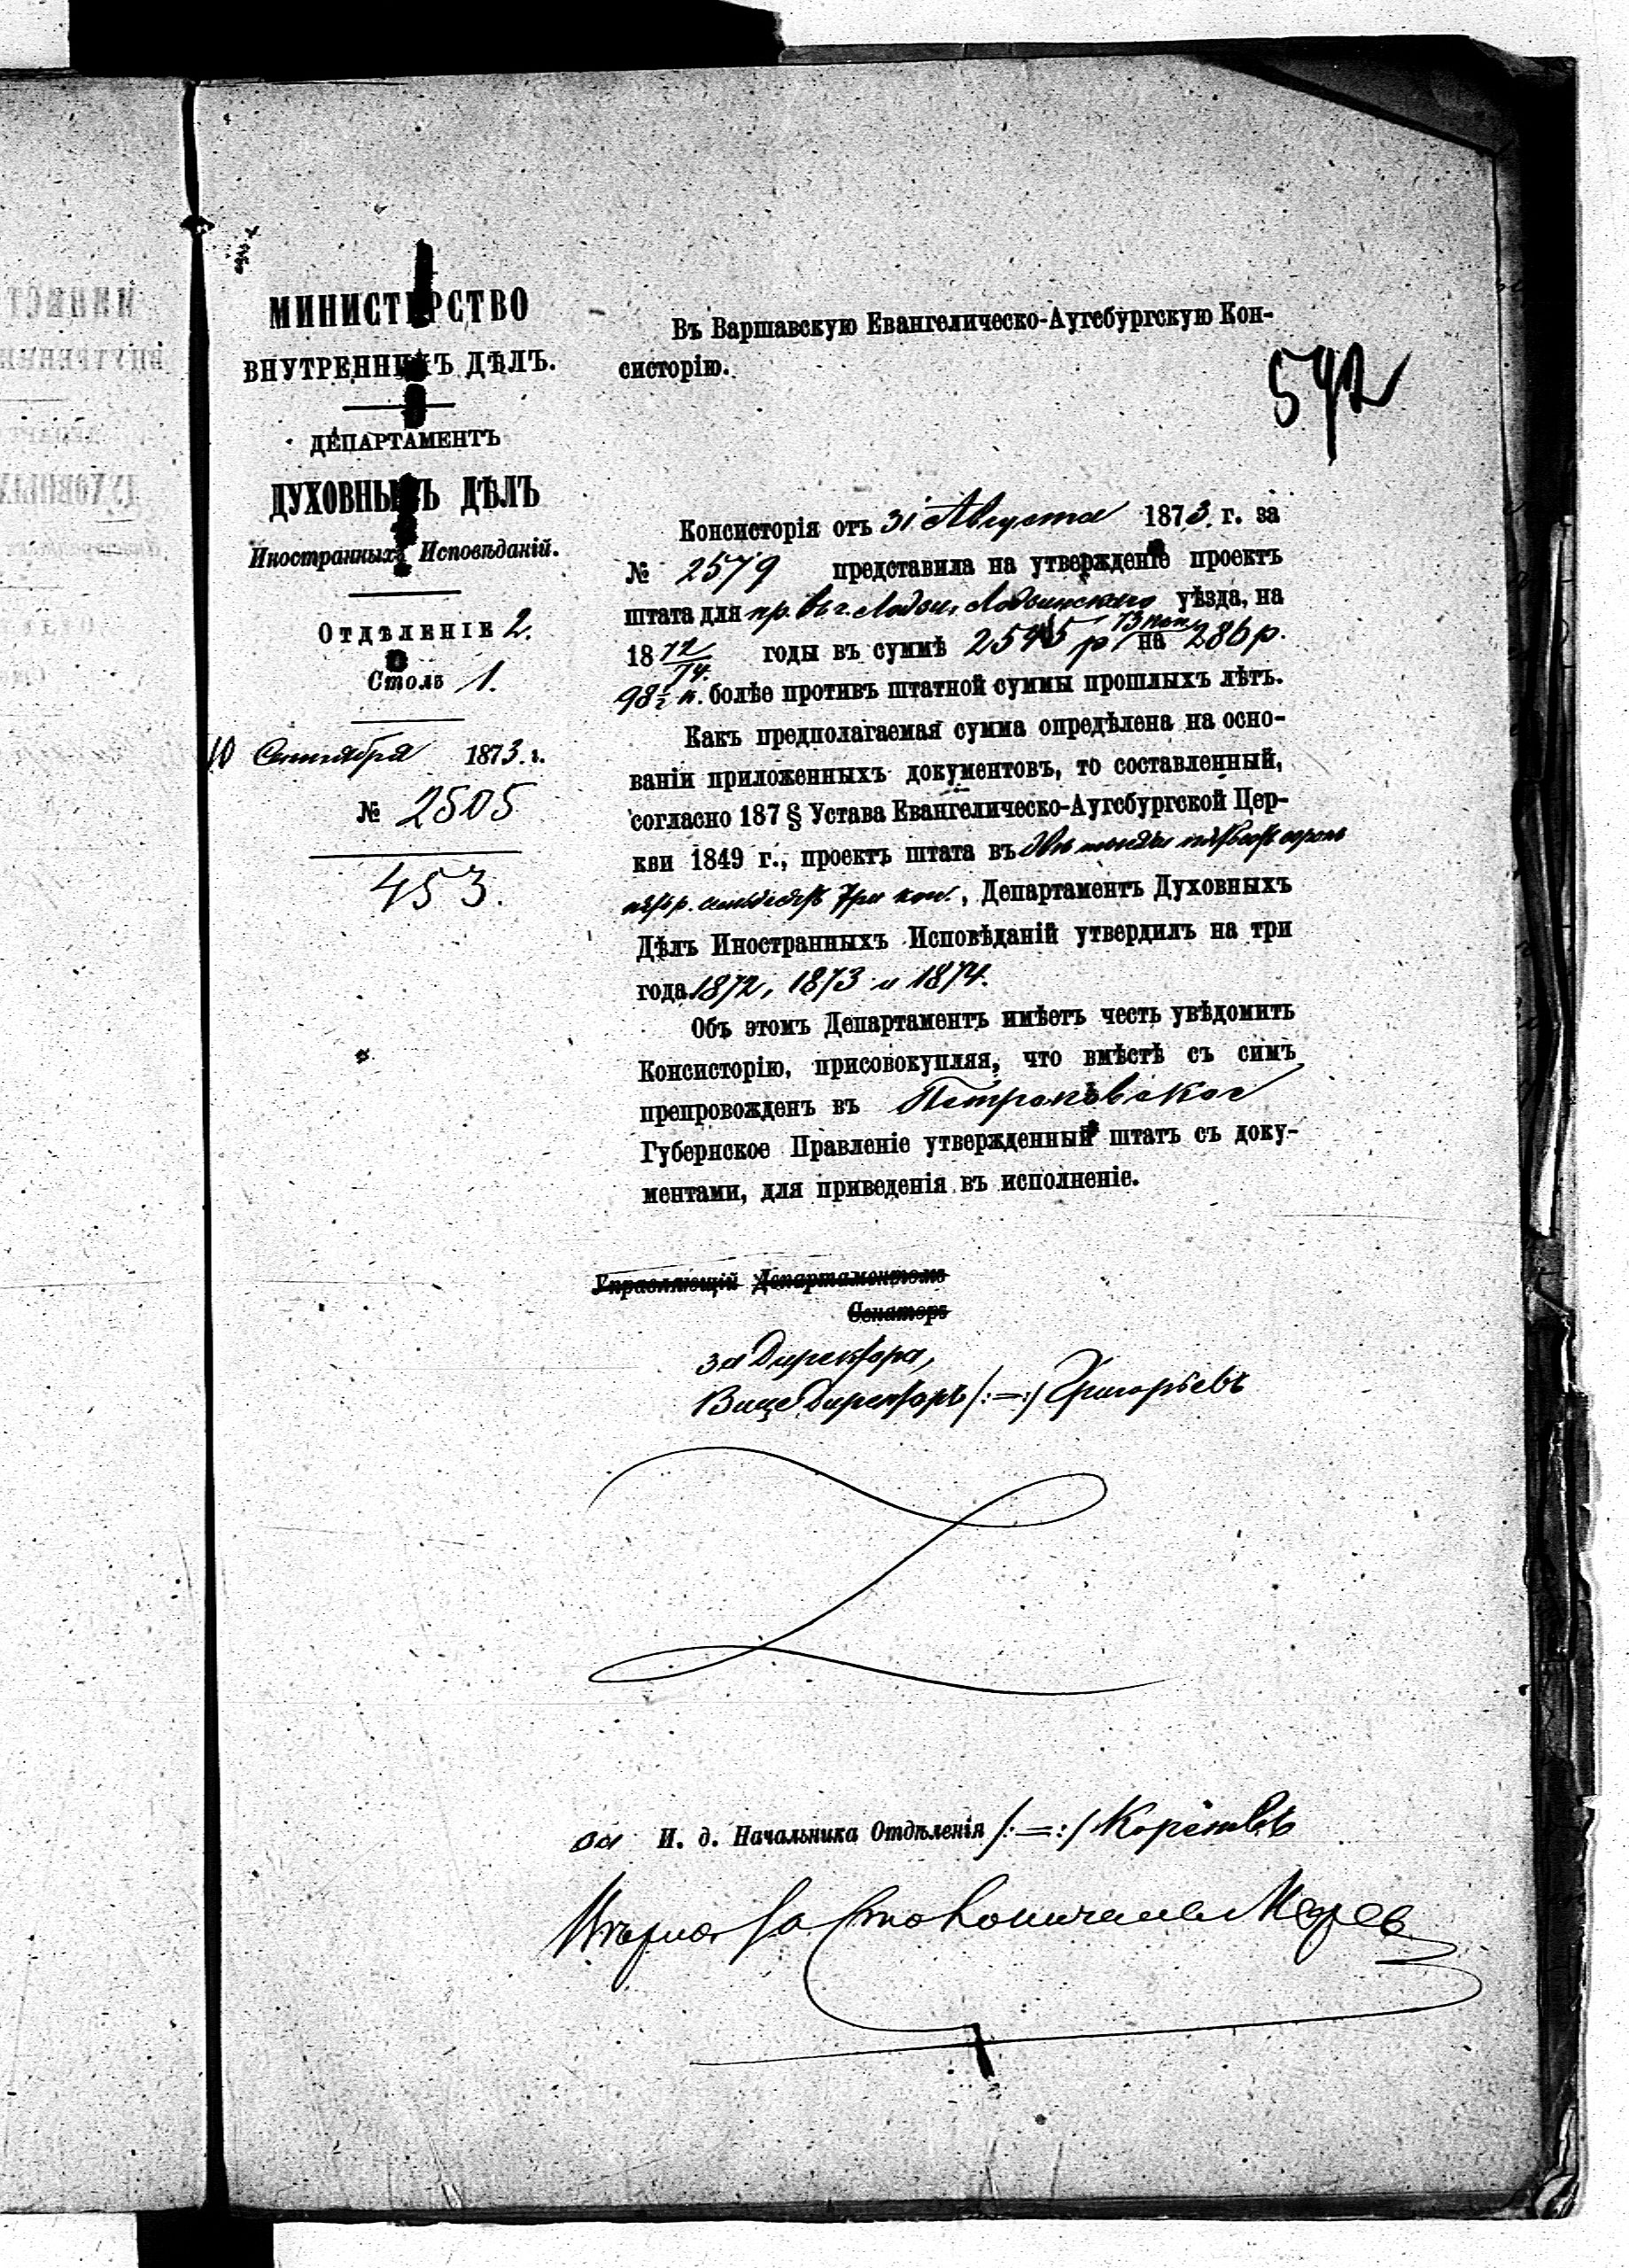 МИНИСТЕРСТВО
ВНУТРЕННИХЪ ДѢЛЪ.
ДЕПАРТАМЕНТЪ
ДУХОВНЫХЪ ДѢЛЪ
Иностранныхъ Исповѣданій.
Отдѣленіе 2.
Столъ 1.
10 Сентября 1873. г.
№ 2505
453.
Въ Варшавскую Евангелическо-Аугсбургскую Кон-
систорію.
592
Консисторія отъ 31 Августа 1873. г. за
№ 2579 представила на утвержденіе проектъ
штата для пр. въ г. Лодзи, Лодзинскаго уѣзда, на
1872/74. годы въ суммѣ 2545 р. 73 коп. на 286 р.
98½ к. болѣе противъ штатной суммы прошлыхъ лѣтъ.
Какъ предполагаемая сумма опредѣлена на осно-
ваніи приложенныхъ документовъ, то составленный,
согласно 187 § Устава Евангелическо-Аугсбургской Цер-
кви 1849 г., проектъ штата въ двѣ тысячи пятьсотъ сорокъ
пять р. семьдесятъ три коп., Департаментъ Духовныхъ
Дѣлъ Иностранныхъ Исповѣданій утвердилъ на три
года 1872, 1873 и 1874.
Объ этомъ Департаментъ имѣетъ честь увѣдомить
Консисторію, присовокупляя, что вмѣстѣ съ симъ
препровожденъ въ Петроковское
Губернское Правленіе утвержденный штатъ съ доку-
ментами, для приведенія въ исполненіе.
Управляющій Департаментомъ
Сенаторъ
за Директора,
Вице Директоръ /:=:/ Григорьевъ
за И. д. Начальника Отдѣленія /:=:/
Вѣрно: За Столоначальника